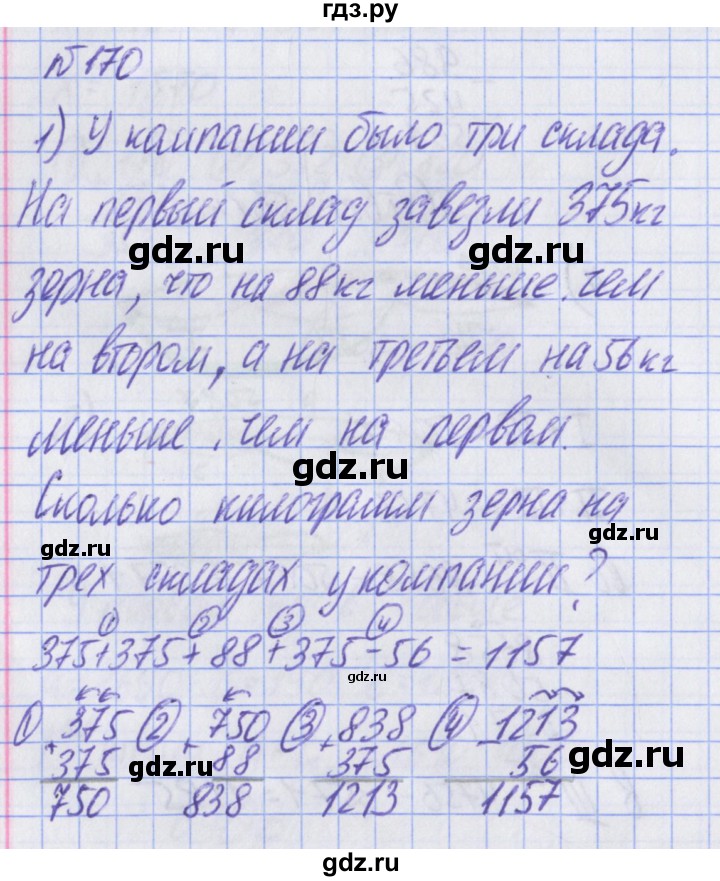 гдз.ру
№170
1) У компании было три склада.
На первый склад завезли 375кг
gdz.ru gdz.ru
зерна, что на 88кг меньше. чем
на втором, а на третьем на 56кг
меньше. чем на первом.
gdz.ru
Сколько килограмм зерна на
gdz.ru gdz.ru
трех складах у компании?
① ② ③ ④
375+375+88+375-56=1157
gdz.ru
① 375 ② 750 ③ 838 ④ 1213
+375 + 88 + 375 - 56
gdz.ru gdz.ru
750 838 1213 1157
gdz.ru